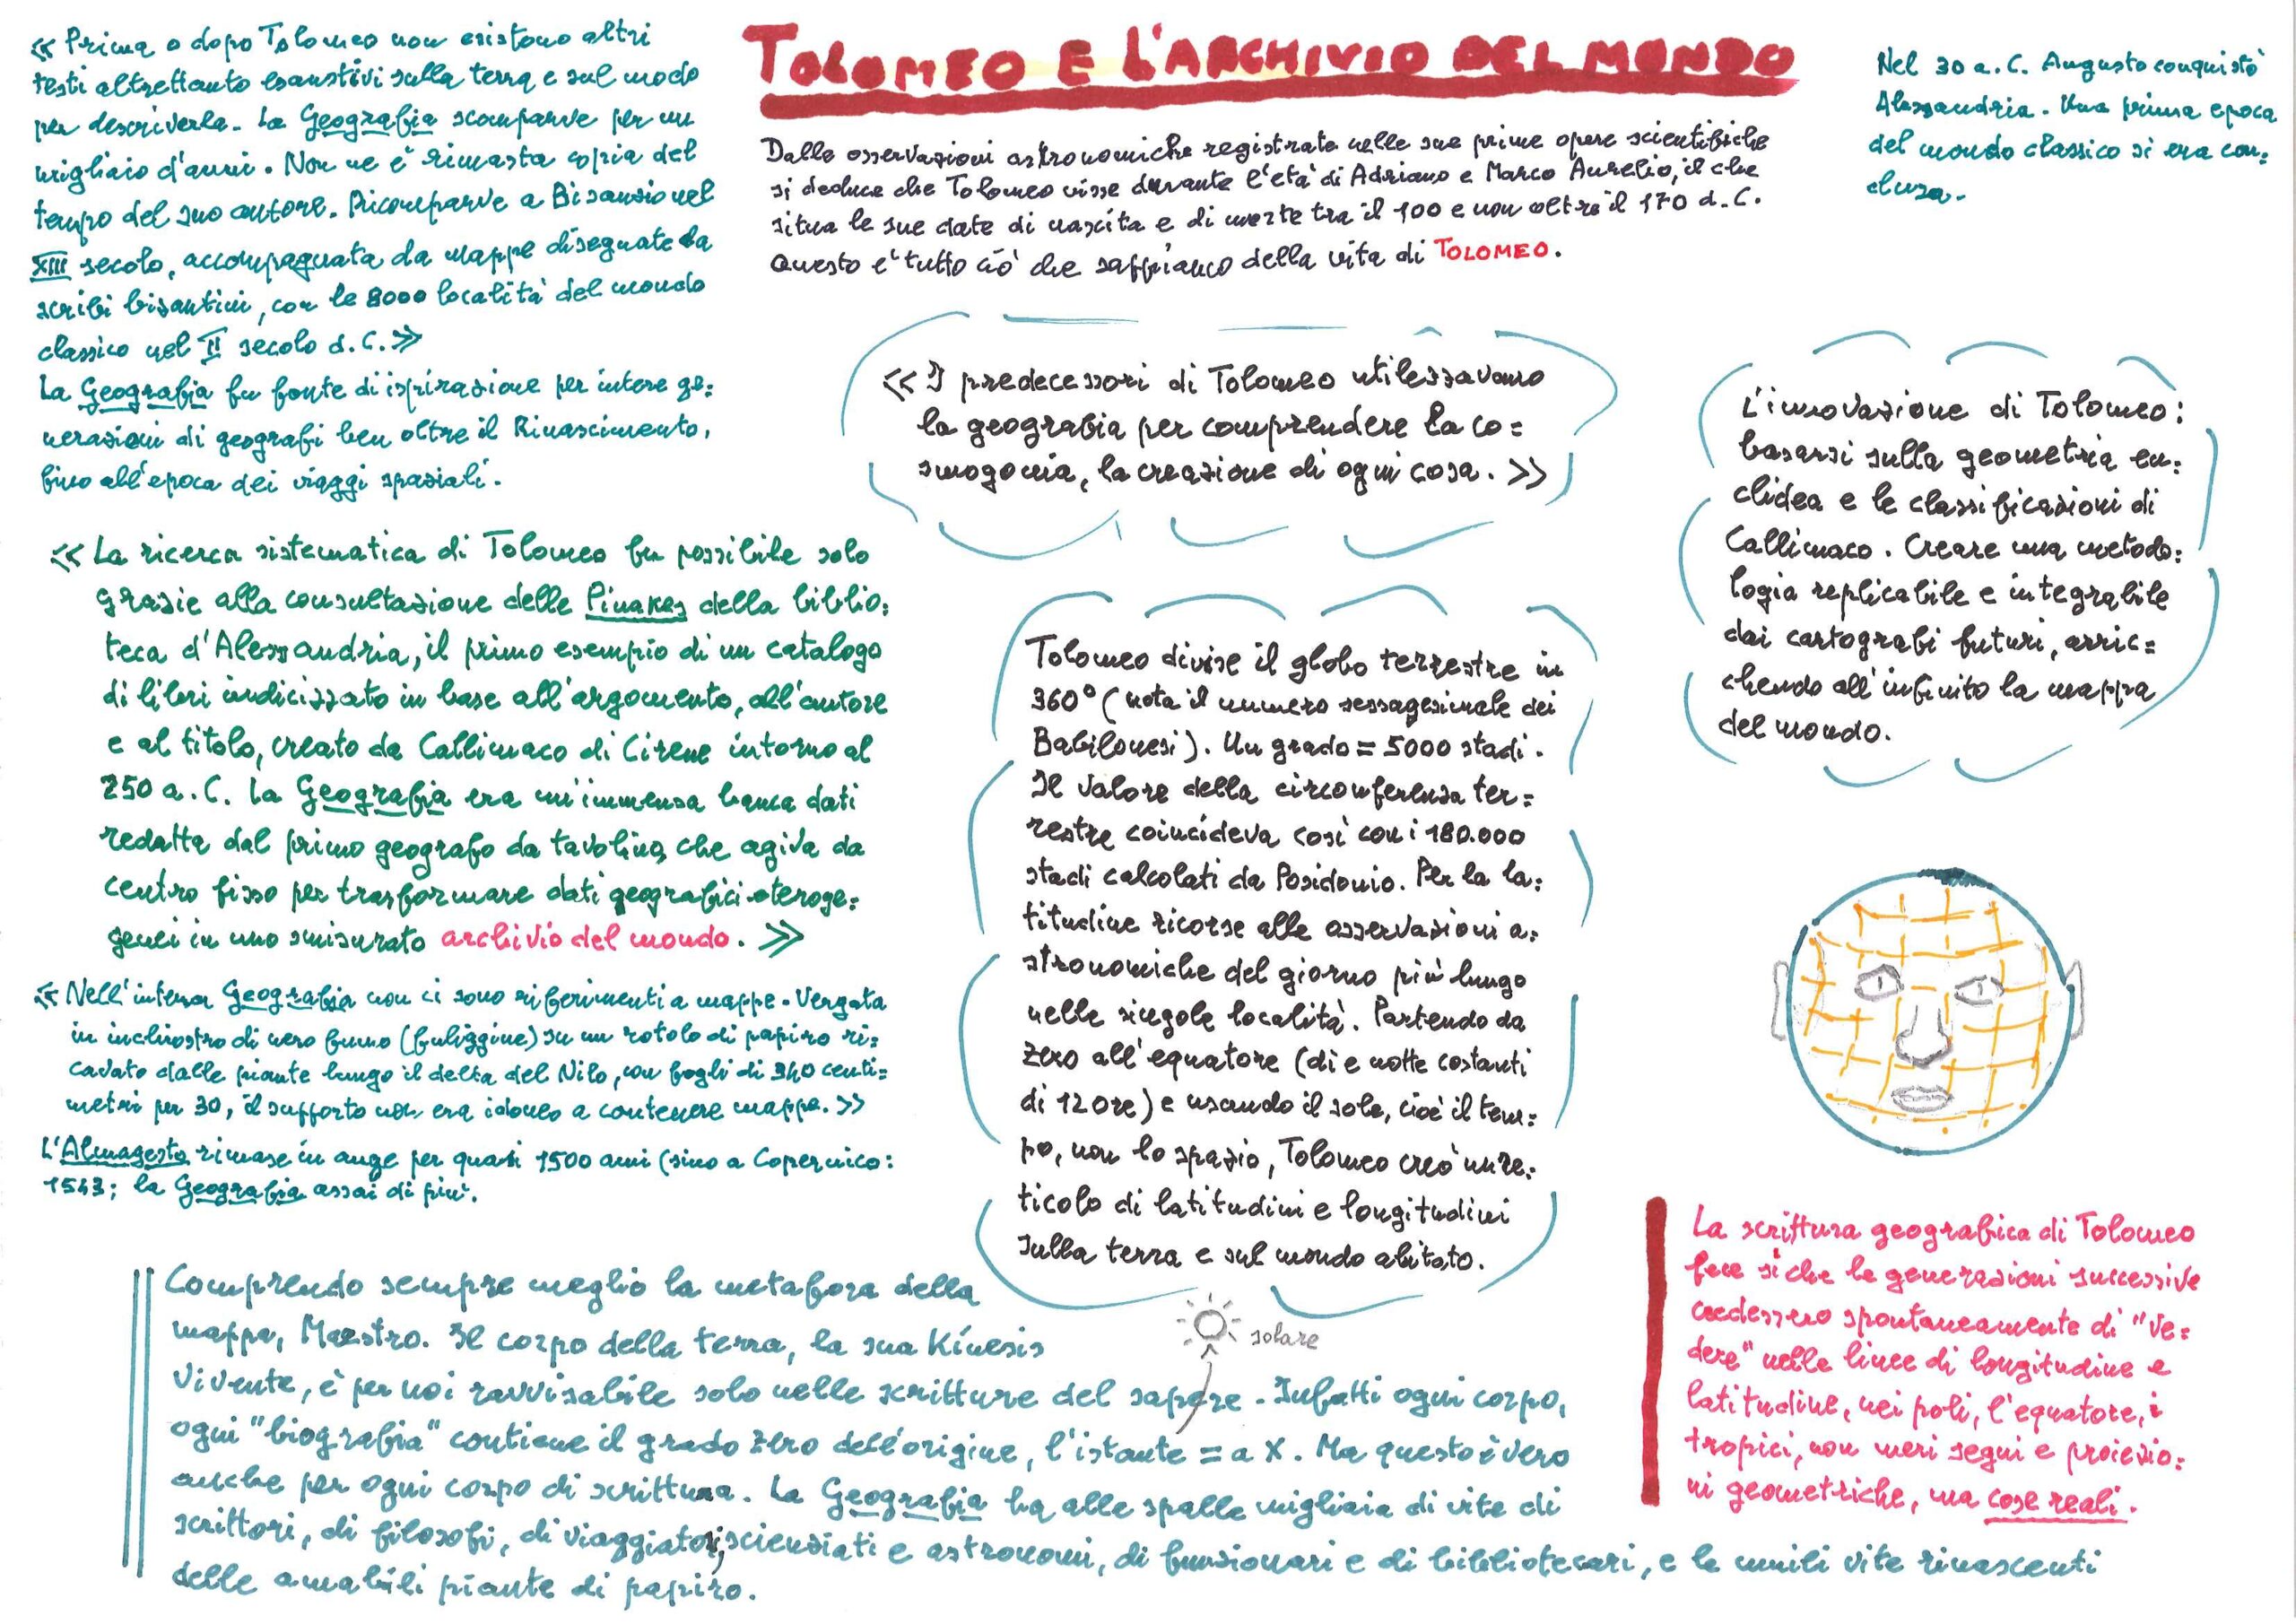 TOLOMEO E L'ARCHIVIO DEL MONDO
« Prima o dopo Tolomeo non esistono altri
testi altrettanto esaustivi sulla terra e sul modo
per descriverla. La Geografia scomparve per un
migliaio d'anni. Non ne è rimasta copia del
tempo del suo autore. Ricomparve a Bisanzio nel
XIII secolo, accompagnata da mappe disegnate da
scribi bizantini, con le 8000 località del mondo
classico nel II secolo d.C. »
La Geografia fu fonte di ispirazione per intere ge=
nerazioni di geografi ben oltre il Rinascimento,
fino all'epoca dei viaggi spaziali.
« La ricerca sistematica di Tolomeo fu possibile solo
grazie alla consultazione delle Pinakes della biblio=
teca d'Alessandria, il primo esempio di un catalogo
di libri indicizzato in base all'argomento, all'autore
e al titolo, creato da Callimaco di Cirene intorno al
250 a.C. La Geografia era un'immensa banca dati
redatta dal primo geografo da tavolino, che agiva da
centro fisso per trasformare dati geografici eteroge=
genei in uno smisurato archivio del mondo. »
« Nell'intera Geografia non ci sono riferimenti a mappe. Vergata
in inchiostro di nero fumo (fuliggine) su un rotolo di papiro ri=
cavato dalle piante lungo il delta del Nilo, con fogli di 340 centi=
metri per 30, il supporto non era idoneo a contenere mappe. »
L'Almagesto rimase in auge per quasi 1500 anni (sino a Copernico:
1543; la Geografia assai di più.
Dalle osservazioni astronomiche registrate nelle sue prime opere scientifiche
si deduce che Tolomeo visse durante l'età di Adriano e Marco Aurelio, il che
situa le sue date di nascita e di morte tra il 100 e non oltre il 170 d.C.
Questo è tutto ciò che sappiamo della vita di TOLOMEO.
Nel 30 a.C. Augusto conquistò
Alessandria. Una prima epoca
del mondo classico si era con=
clusa.
« I predecessori di Tolomeo utilizzavano
la geografia per comprendere la co=
smogonia, la creazione di ogni cosa. »
L'innovazione di Tolomeo:
basarsi sulla geometria eu=
clidea e le classificazioni di
Callimaco. Creare una metodo=
logia replicabile e integrabile
dai cartografi futuri, arric=
chendo all'infinito la mappa
del mondo.
Tolomeo divise il globo terrestre in
360° (nota il numero sessagesimale dei
Babilonesi). Un grado = 5000 stadi.
Il valore della circonferenza ter=
restre coincideva così con i 180.000
stadi calcolati da Posidonio. Per la la=
titudine ricorse alle osservazioni a=
stronomiche del giorno più lungo
nelle singole località. Partendo da
zero all'equatore (dì e notte costanti
di 12 ore) e usando il sole, cioè il tem=
po, non lo spazio, Tolomeo creò un re=
ticolo di latitudini e longitudini
sulla terra e sul mondo abitato.
solare
La scrittura geografica di Tolomeo
fece sì che le generazioni successive
credessero spontaneamente di "ve=
dere" nelle linee di longitudine e
latitudine, nei poli, l'equatore, i
tropici, non meri segni e proiezio=
ni geometriche, ma cose reali.
Comprendo sempre meglio la metafora della
mappa, Maestro. Il corpo della terra, la sua Kínesis
vivente, è per noi ravvisabile solo nelle scritture del sapere. Infatti ogni corpo,
ogni "biografia" contiene il grado zero dell'origine, l'istante = a X. Ma questo è vero
anche per ogni corpo di scrittura. La Geografia ha alle spalle migliaia di vite di
scrittori, di filosofi, di viaggiatori, scienziati e astronomi, di funzionari e di bibliotecari, e le umili vite rinascenti
delle amabili piante di papiro.